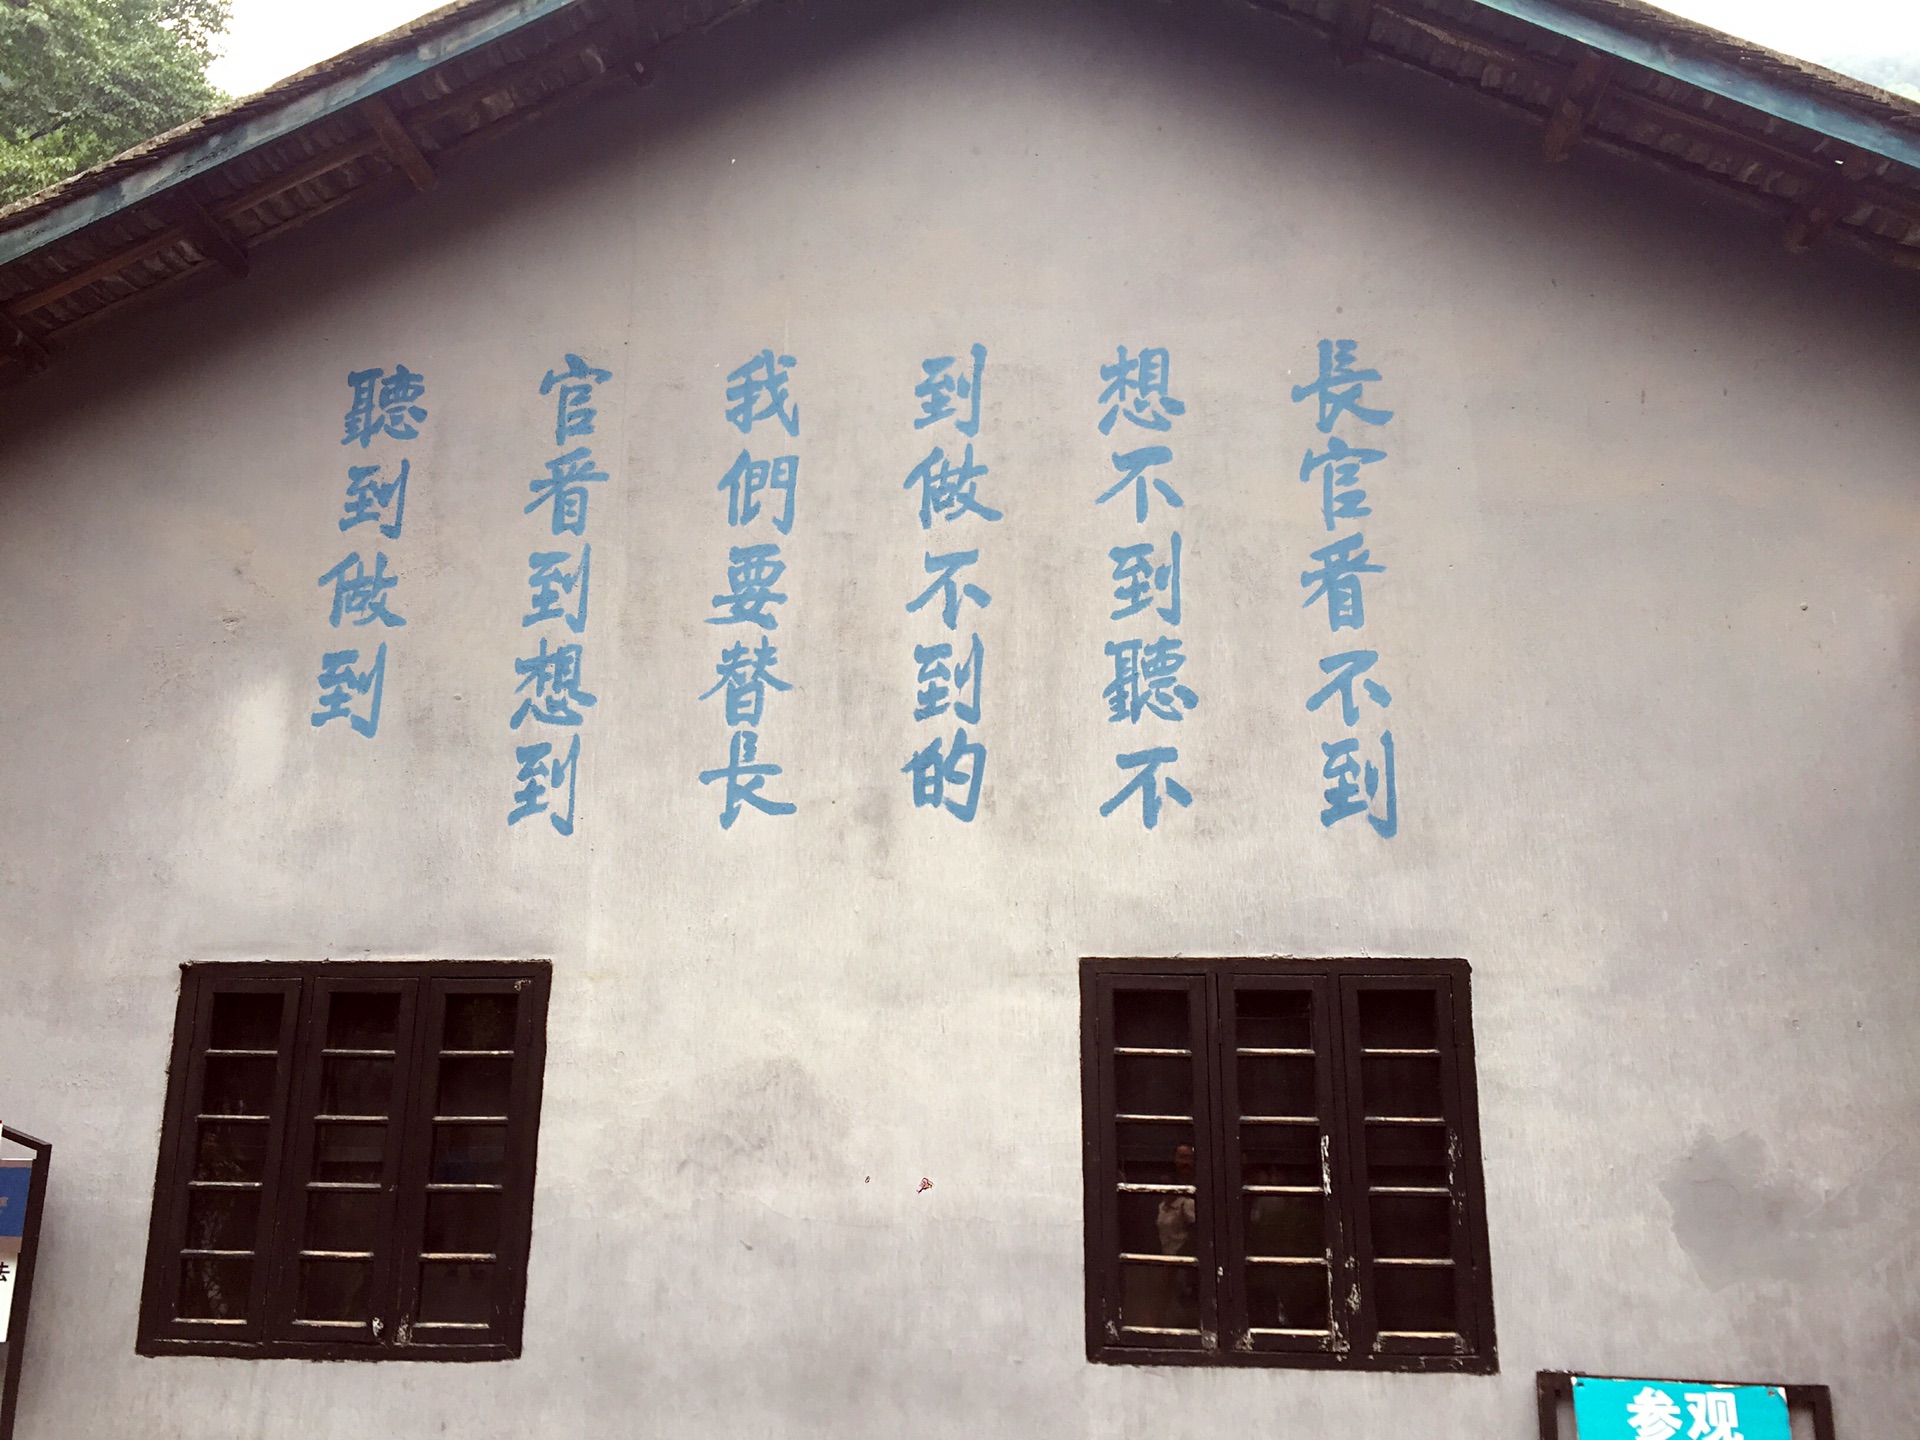 長官看不到
想不到聽不
到做不到的
我們要替長
官看到想到
聽到做到
参观